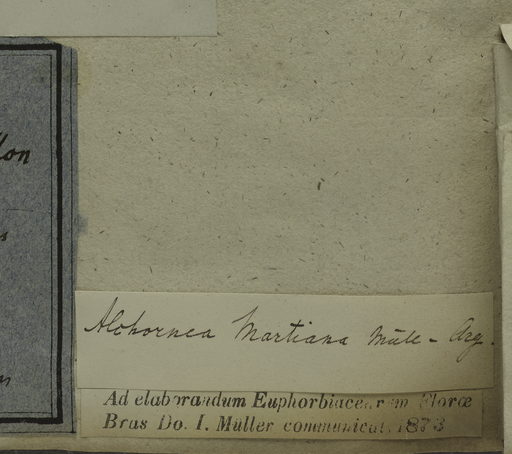 lon
Alchornea Martiana Müll-Arg.
Ad elaborandum Euphorbiacearum Floræ
Bras Do. I. Müller communicat. 1873